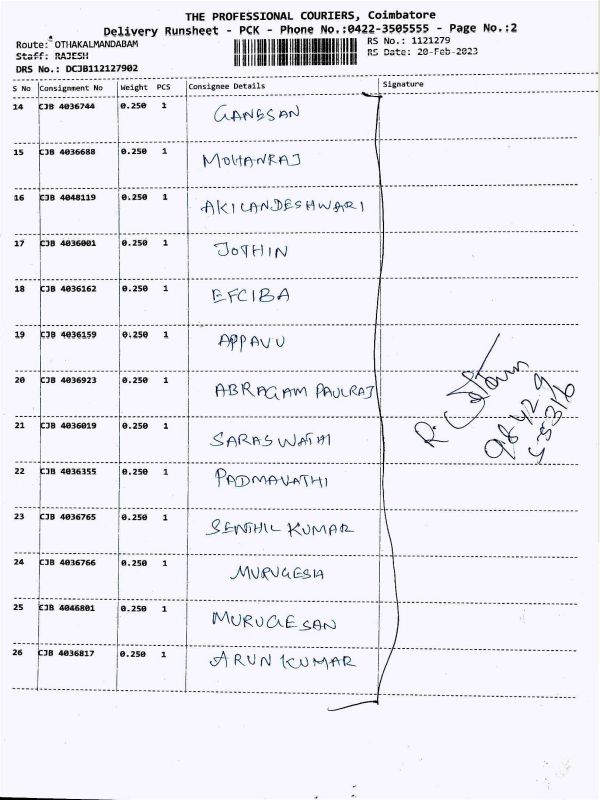 THE PROFESSIONAL COURIERS, Coimbatore
Delivery Runsheet - PCK - Phone No.:0422-3505555 - Page No.:2
Route: OTHAKALMANDABAM
RS No.: 1121279
Staff: RAJESH
RS Date: 20-Feb-2023
DRS No.: DCJB112127902
S No Consignment No Weight PCS Consignee Details Signature
14 CJB 4036744 0.250 1 GANESAN
15 CJB 4036688 0.250 1 MOHANRAJ
16 CJB 4048119 0.250 1 AKILANDESHWARI
17 CJB 4036001 0.250 1 JOTHIN
18 CJB 4036162 0.250 1 EFCIBA
19 CJB 4036159 0.250 1 APPAVU
20 CJB 4036923 0.250 1 ABRAGAM PAULRAJ
21 CJB 4036019 0.250 1 SARASWATHI
22 CJB 4036355 0.250 1 PADMAVATHI
23 CJB 4036765 0.250 1 SENTHIL KUMAR
24 CJB 4036766 0.250 1 MURUGESIA
25 CJB 4046801 0.250 1 MURUGESAN
26 CJB 4036817 0.250 1 ARUN KUMAR
R.
98429
55316